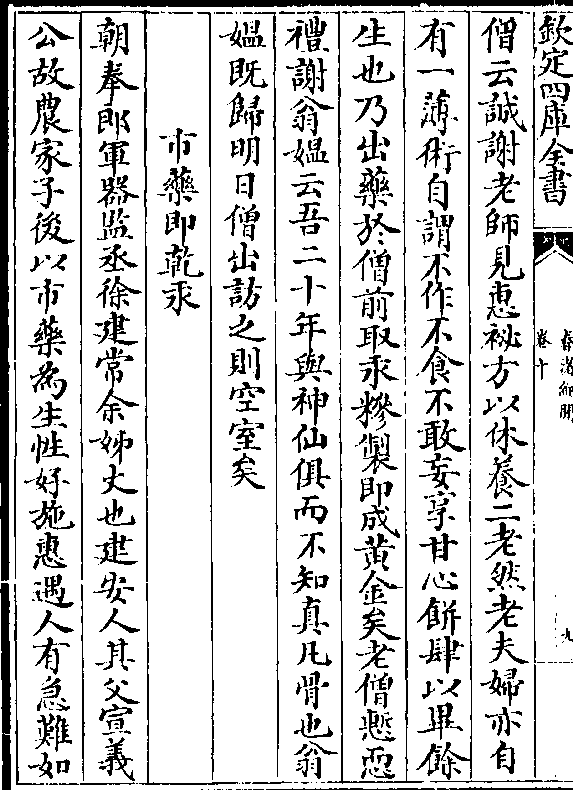 欽定四庫全書
春渚紀聞
卷十
九
僧云誠謝老師見惠祕方以休養二老然老夫婦亦自
有一薄術自謂不作不食不敢妄享甘心餅肆以畢餘
生也乃出藥於僧前取汞糝製即成黃金矣老僧慙恧
禮謝翁媼云吾二十年與神仙俱而不知真凡骨也翁
媼既歸明日僧出訪之則空室矣
市藥即乾汞
朝奉郎軍器監丞徐建常余姊丈也建安人其父宣義
公故農家子後以市藥為生性好施惠遇人有急難如